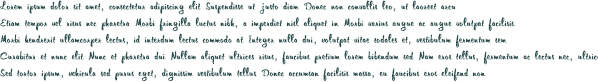 Lorem ipsum dolor sit amet, consectetur adipiscing elit Suspendisse ut justo diam Donec non convallis leo, ut laoreet arcu
Etiam tempor vel risus nec pharetra Morbi fringilla luctus nibh, a imperdiet nisl aliquet in Morbi varius augue ac augue volutpat facilisis
Morbi hendrerit ullamcorper lectus, id interdum lectus commodo at Integer nulla dui, volutpat vitae sodales et, vestibulum fermentum sem
Curabitur et nunc elit Nunc et pharetra dui Nullam aliquet ultrices risus, faucibus pretium lorem bibendum sed Nam eros tellus, fermentum ac lectus nec, ultric
Sed tortor ipsum, vehicula sed purus eget, dignissim vestibulum tellus Donec accumsan facilisis massa, eu faucibus eros eleifend non